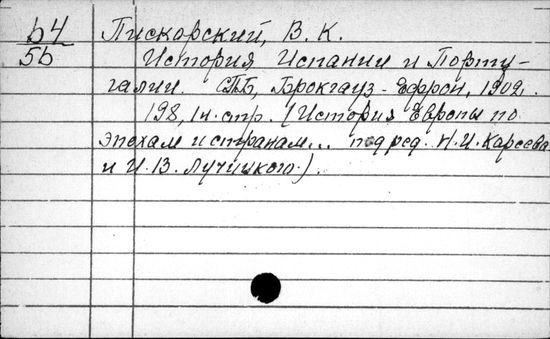 b4 Пискорский, В. К.
5b История Испании и Порту-
галии. СПБ, Брокгауз-Ефрон, 1902.
198, 1 н. стр. (История Европы по
эпохам и странам... под ред. Н. И. Кареева
и И. В. Лучицкого.).